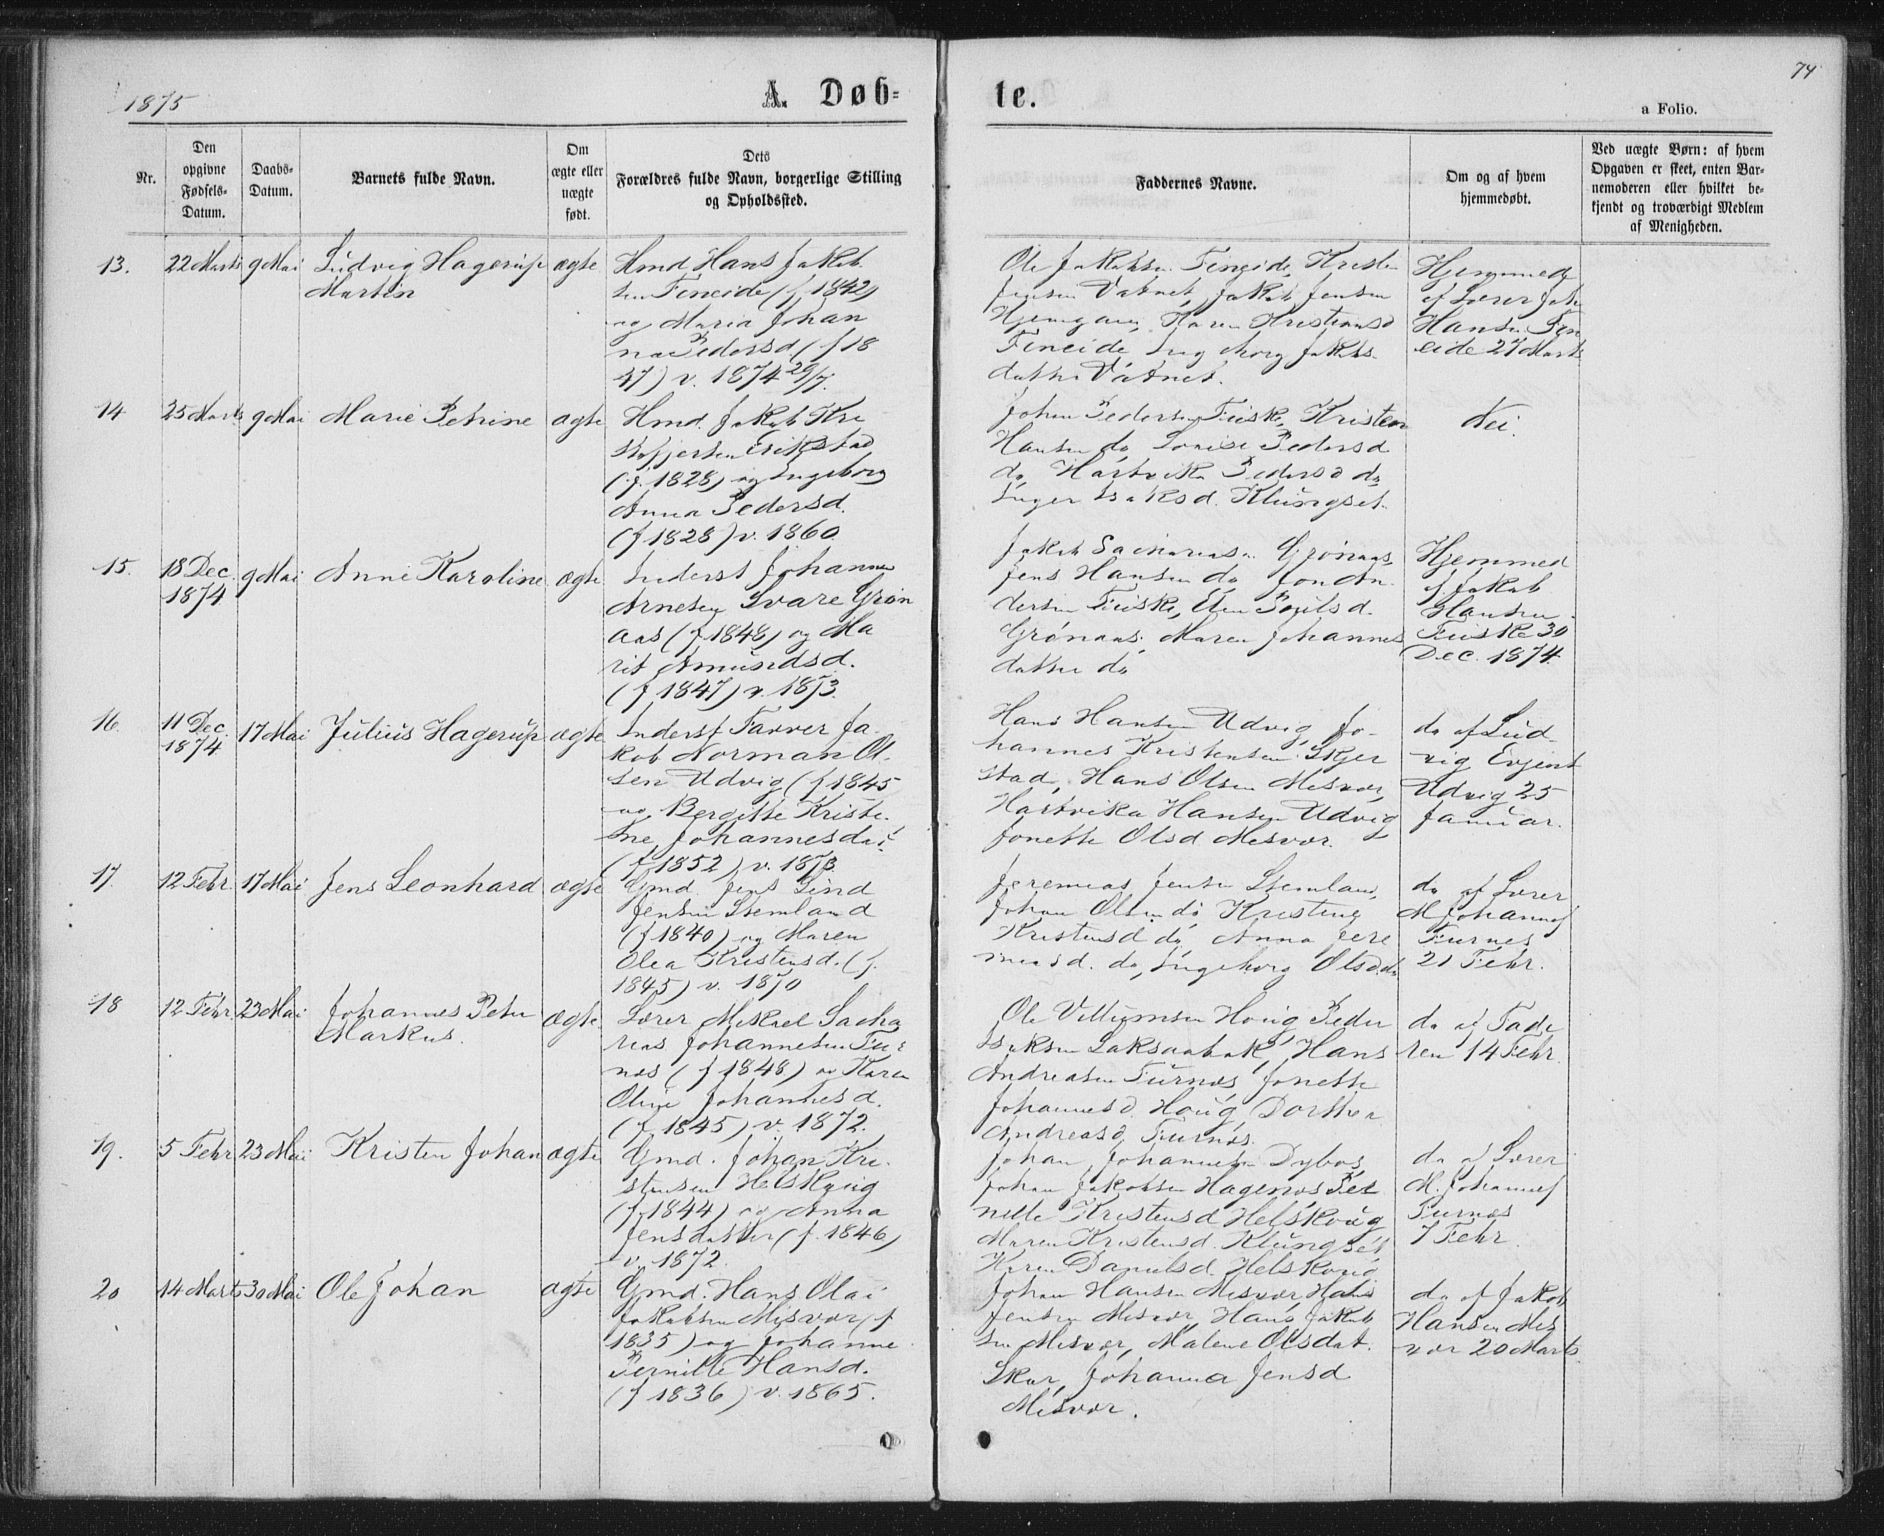 1875
A. Døb=
te.
74
a Folio.
Nr.
Den
opgivne
Fødsels-
Datum.
Daabs-
Datum.
Barnets fulde Navn.
Om
ægte eller
uægte
født.
Dets
Forældres fulde Navn, borgerlige Stilling
og Opholdssted.
Faddernes Navne.
Om og af hvem
hjemmedøbt.
Ved uægte Børn: af hvem
Opgaven er skeet, enten Bar-
nemoderen eller hvilket be-
kjendt og troværdigt Medlem
af Menigheden.
13.
22 Marts
9 Mai
Ludvig Hagerup
Martin
ægte
Hmd. Hans Jakob
sen Fineide (f 1842)
og Maria Johan
na Pedersd (f 18
47) v. 1874 29/7.
Ole Jakobsen Fineide, Kristen
Jensen Vatnet, Jakob Jensen
Hjemgam, Karen Kristiansd
Fineide, Ingeborg Jakobs
datter Vatnet.
Hjemmedø
af Lærer Joh
Hansen Fin
eide 27 Marts
14
25 Marts
9 Mai
Marie Petrine
ægte
Hmd. Jakob Kri
stofersen Erikstad
(f. 1828) og Ingeborg
Anna Pedersd.
(f 1828) v. 1860
Johan Pedersen Fuske, Kristen
Hansen do, Lovise Pedersd
do, Hartvika Pedersd do
Inger Isaksd. Klungset.
Nei.
15.
18 Dec.
1874
9 Mai
Anne Karoline
ægte
Inderst Johannes
Arnesen Svare Grøn
aas (f 1848) og Ma
rit Amundsd.
(f 1847) v. 1873.
Jakob Sakariasen Grønaas
Jens Hansen do, Jon An
dersen Fuske, Elen Povelsd.
Grønaas, Maren Johannes
datter do
Hjemmed
af Jakob
Hansen
Fuske 30
Dec. 1874.
16.
11 Dec.
1874
17 Mai
Julius Hagerup
ægte
Inderst Farver Ja-
kob Norman Ol-
sen Udvig (f 1845
og Bergitte Kristi-
ne Johannesdat
(f 1852) v. 1873.
Hans Hansen Udvig, Jo-
hannes Kristensen Skjer
stad, Hans Olsen Misvær,
Hartvika Hansen Udvig
Jonette Olsd Misvær.
do af Lud-
vig Evjent
Udvig 25
Januar.
17.
12 Febr.
17 Mai
Jens Leonhard
ægte
Gmd. Jens Lind
Jensen Stemland
(f 1840) og Maren
Olea Kristensd. (f.
1845) v. 1870
Jeremias Jensen Stemland,
Johan Olsen do Kristine
Kristensd do, Anna Jere
miasd. do, Ingeborg Olsd. do
do af Lærer
M Johannes
Furnes
21 Febr.
18
12 Febr
23 Mai
Johannes Peter
Markus.
ægte
Lærer Mikael Sacha
rias Johannesen Fur
næs (f 1848) og Karen
Oline Johannesd.
(f 1845) v. 1872.
Ole Villumsen Houg, Peder
Isaksen Laksaabak, Hans
Andreasen Furnæs, Jonette
Johannesd. Houg, Dorthea
Andreasd, Furnæs.
do af Fade
ren 14 Febr.
19.
5 Febr
23 Mai
Kristen Johan
ægte
Gmd. Johan Kri-
stensen Helskoug
(f 1844) og Anna
Jensdatter (f. 1846)
v. 1872.
Johan Johannesen Dybos,
Johan Jakobsen Hagenæs, Per
nelle Kristensd Helskoug
Maren Kristensd. Klungset
Karen Danielsd. Helskoug
do af Lærer
M. Johannes
Furnæs
7 Febr.
20
14 Marts
30 Mai
Ole Johan
ægte
Gmd. Hans Olai
Jakobsen Misvær (f
1835) og Johanne
Pernille Hansd.
(f 1836) v. 1865.
Johan Hansen Misvær, Hans
Jensen Misvær, Hans Jakob
sen Misvær, Malene Olsdat.
Skar, Johanna Jensd
Misvær.
do af Jakob
Hansen Mis
vær 20 Marts.